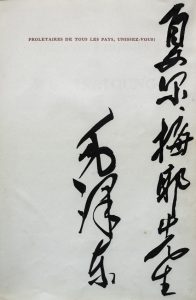 PROLETAIRES DE TOUS LES PAYS, UNISSEZ-VOUS!
夏尔、梅耶先生
毛泽东